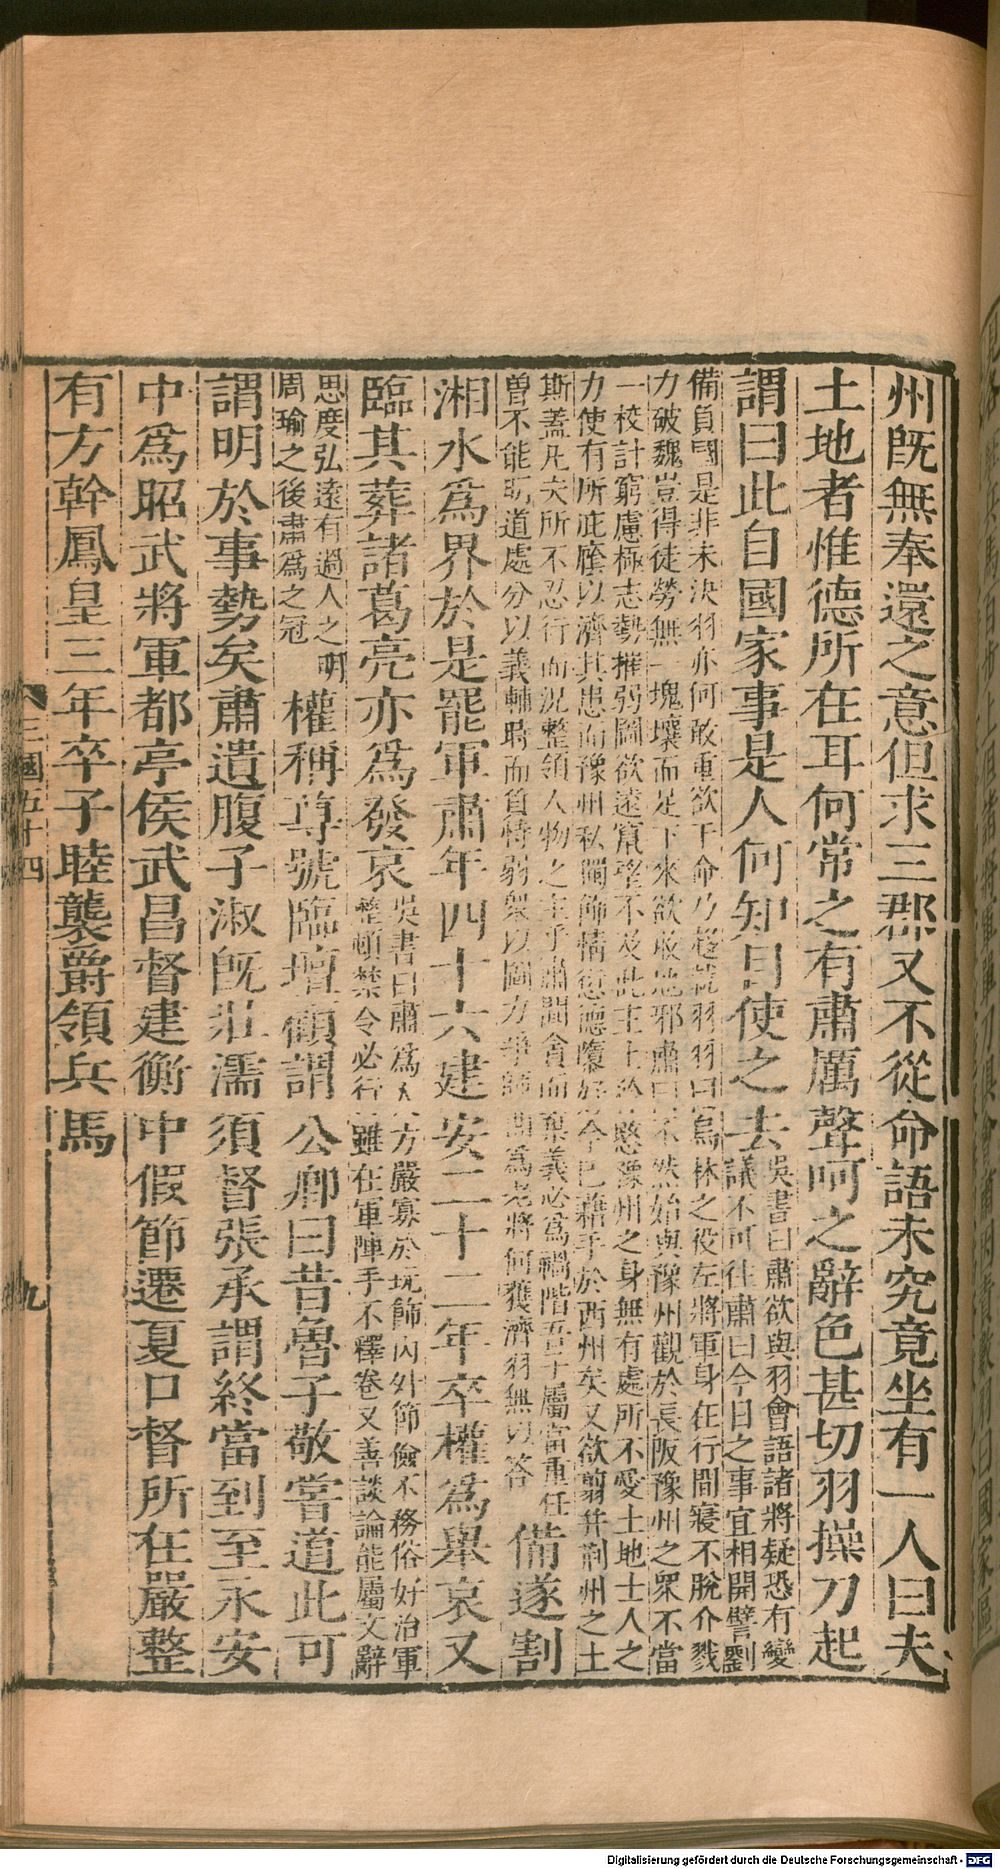 州旣無奉還之意但求三郡又不從命語未究竟坐有一人曰夫
土地者惟德所在耳何常之有肅厲聲呵之辭色甚切羽操刀起
謂曰此自國家事是人何知目使之去
吳書曰肅欲與羽會語諸將疑恐有變
議不可往肅曰今日之事宜相開譬劉
備負國是非未決羽亦何敢重欲干命乃趨就羽羽曰烏林之役左將軍身在行間寢不脫介戮
力破魏豈得徒勞無一塊壤而足下來欲收地邪肅曰不然始與豫州觀於長阪豫州之眾不當
一校計窮慮極志勢摧弱圖欲遠竄望不及此主上矜愍豫州之身無有處所不愛土地士人之
力使有所庇廕以濟其患而豫州私獨飾情愆德隳好今已藉手於西州矣又欲翦幷荆州之土
斯蓋凡夫所不忍行而況整領人物之主乎肅聞貪而棄義必爲禍階吾子屬當重任
曾不能明道處分以義輔時而負恃弱衆以圖力爭師曲爲老將何獲濟羽無以答
備遂割
湘水爲界於是罷軍肅年四十六建安二十二年卒權爲舉哀又
臨其葬諸葛亮亦爲發哀
吳書曰肅爲人方嚴寡於玩飾內外節儉不務俗好治軍
整頓禁令必行雖在軍陣手不釋卷又善談論能屬文辭
思度弘遠有過人之明
周瑜之後肅爲之冠
權稱尊號臨壇顧謂公卿曰昔魯子敬嘗道此可
謂明於事勢矣肅遺腹子淑旣壯濡須督張承謂終當到至永安
中爲昭武將軍都亭侯武昌督建衡中假節遷夏口督所在嚴整
有方幹鳳皇三年卒子睦襲爵領兵馬
三國五十四
九
Digitalisierung gefördert durch die Deutsche Forschungsgemeinschaft - DFG